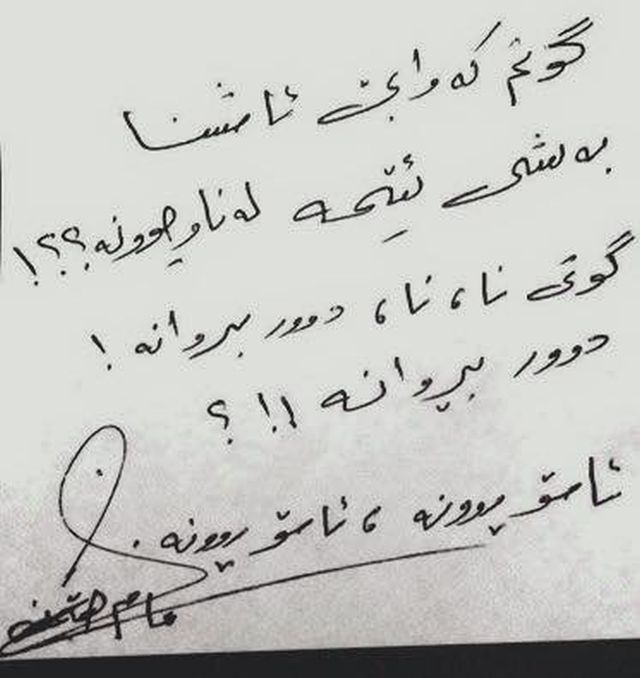 گوتم کە وابێ ئاشنا
بەشی ئێمە لەناوچوونە؟؟!
گوتی نا، نا، دوور بڕوانە!
دوور بڕوانە !!؟
ئاسۆ ڕوونە، ئاسۆ ڕوونە.
مام